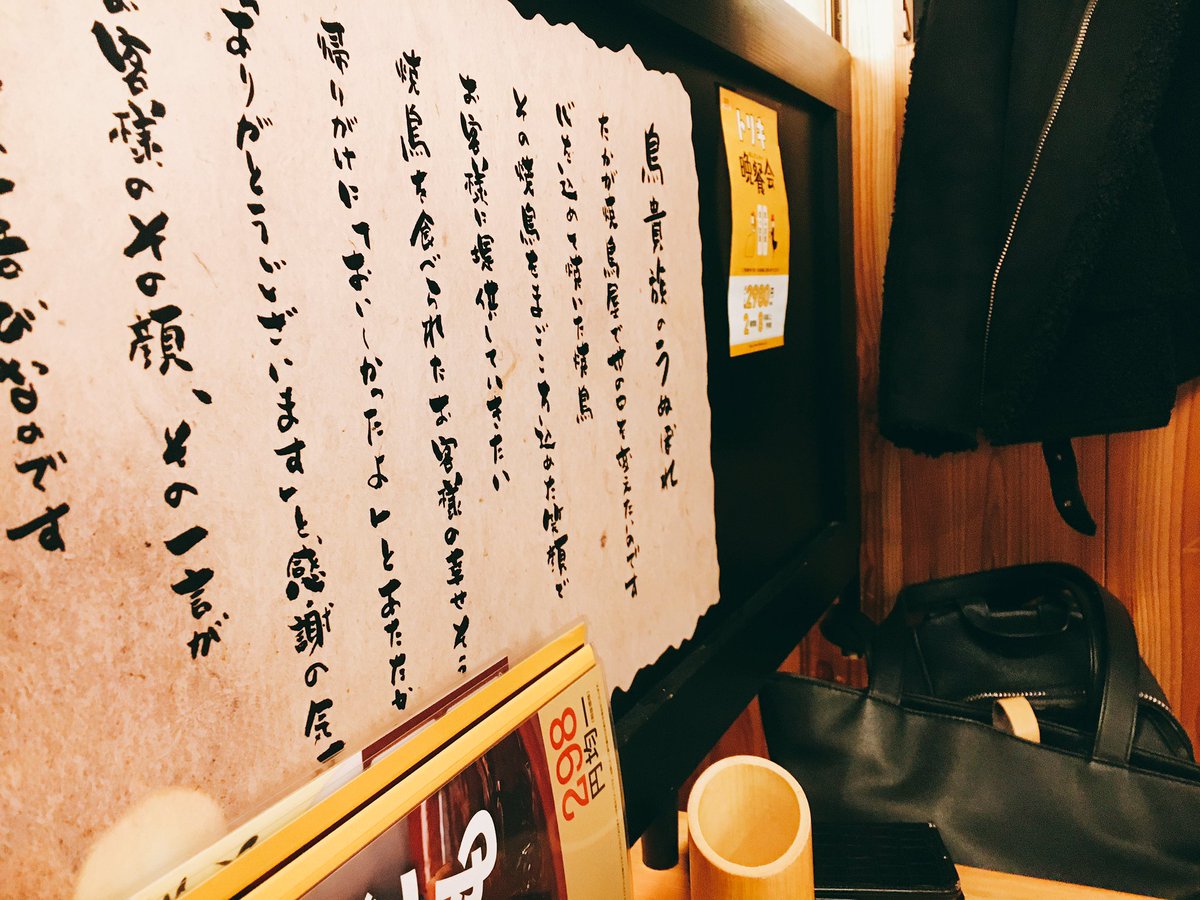 鳥貴族のうぬぼれ
たかが焼鳥屋で世の中を変えたいのです
心を込めて焼いた焼鳥
その焼鳥をまごころ込めた笑顔で
お客様に提供していきたい
焼鳥を食べられたお客様の幸せそう
帰りがけに「おいしかったよ」とあたたか
「ありがとうございます」と、感謝の気
お客様のその顔、その一言が
喜びなのです
トリキ
晩餐会
2980円
298
円均一